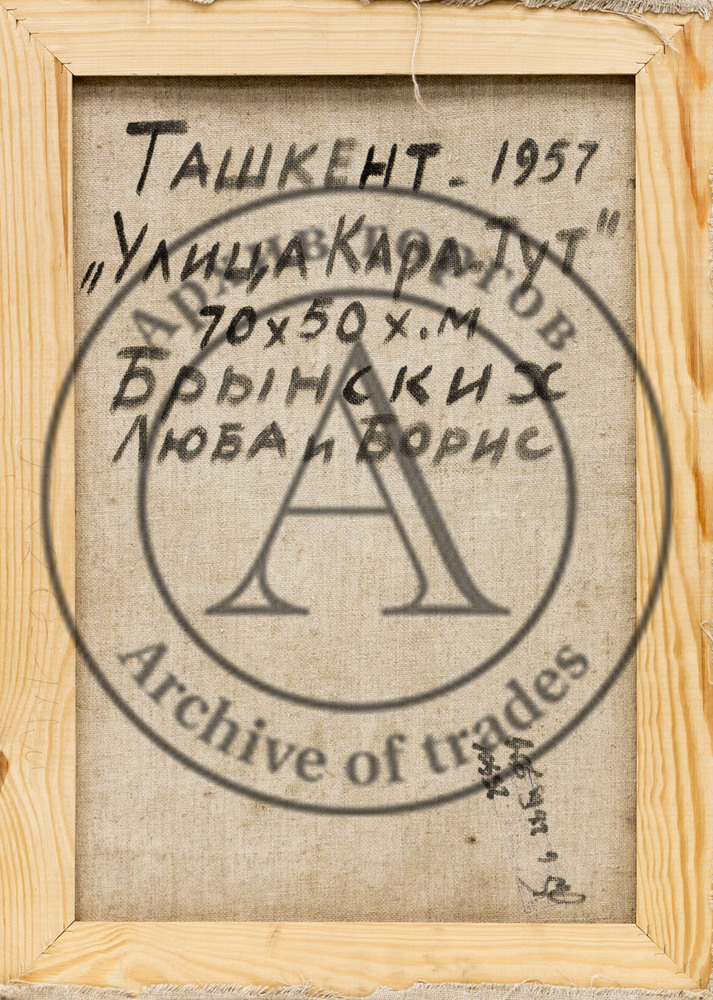 Ташкент. 1957
„Улица Карл. Тут"
70х50 х.м
Брынских
Люба и Борис
Архив торгов
Archive of trades